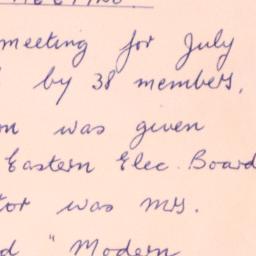 MEETING.
meeting for July
by 38 members.
was given
Eastern Elec. Board
was Mrs.
" Modern